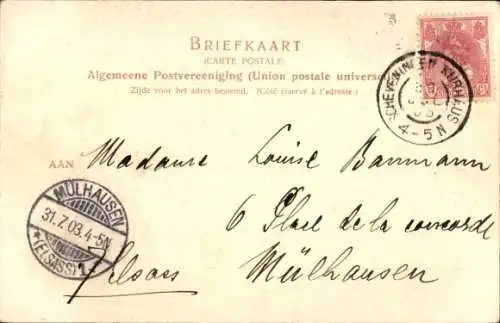 BRIEFKAART
(CARTE POSTALE)
Algemeene Postvereeniging (Union postale univers
Zijde voor het adres bestemd. (Côté réservé à l'adresse.)
SCHEVENINGEN KURHAUS
4-5 N
AAN
Madame Louise Baumann
6 Place de la concorde
Mülhausen
Elsass
MÜLHAUSEN
31.7.03.4-5N
*(ELSASS)1